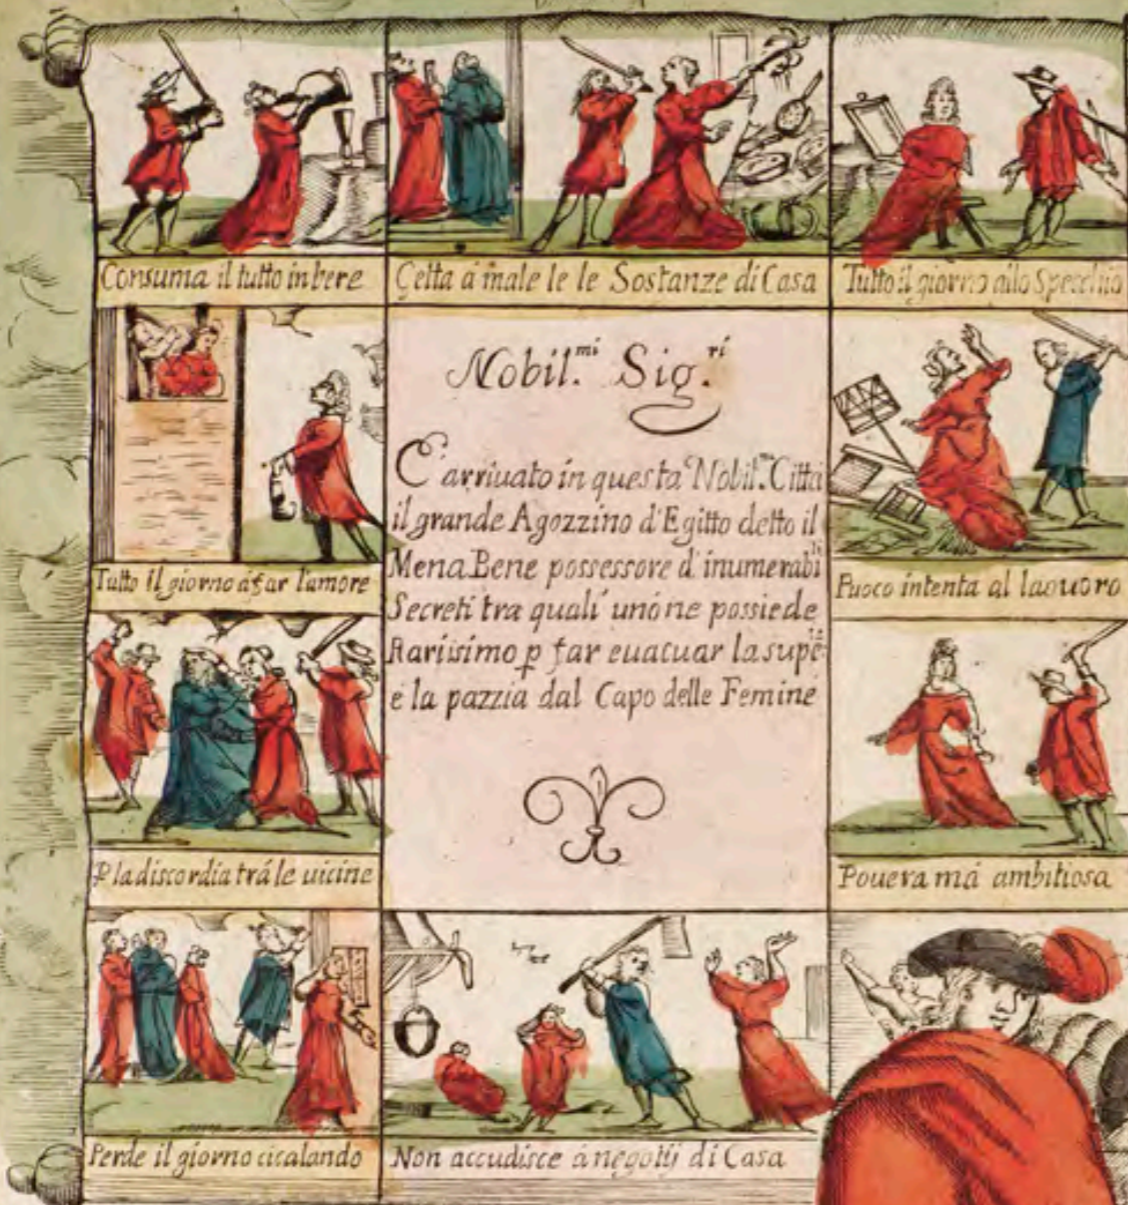 Consuma il tutto in bere
Getta á male le le Sostanze di Casa
Tutto il giorno allo Specchio
Tutto il giorno á far l'amore
Nobil.mi Sig.ri
E arriuato in questa Nobil.ma Città
il grande Agozzino d'Egitto detto il
Mena Bene possessore d'inumerabili
Secreti tra quali uno ne possiede
Rarissimo p far euacuar la supe
e la pazzia dal Capo delle Femine
Puoco intenta al laouoro
P la discordia trá le uicine
Pouera má ambitiosa
Perde il giorno cicalando
Non accudisce á negotij di Casa